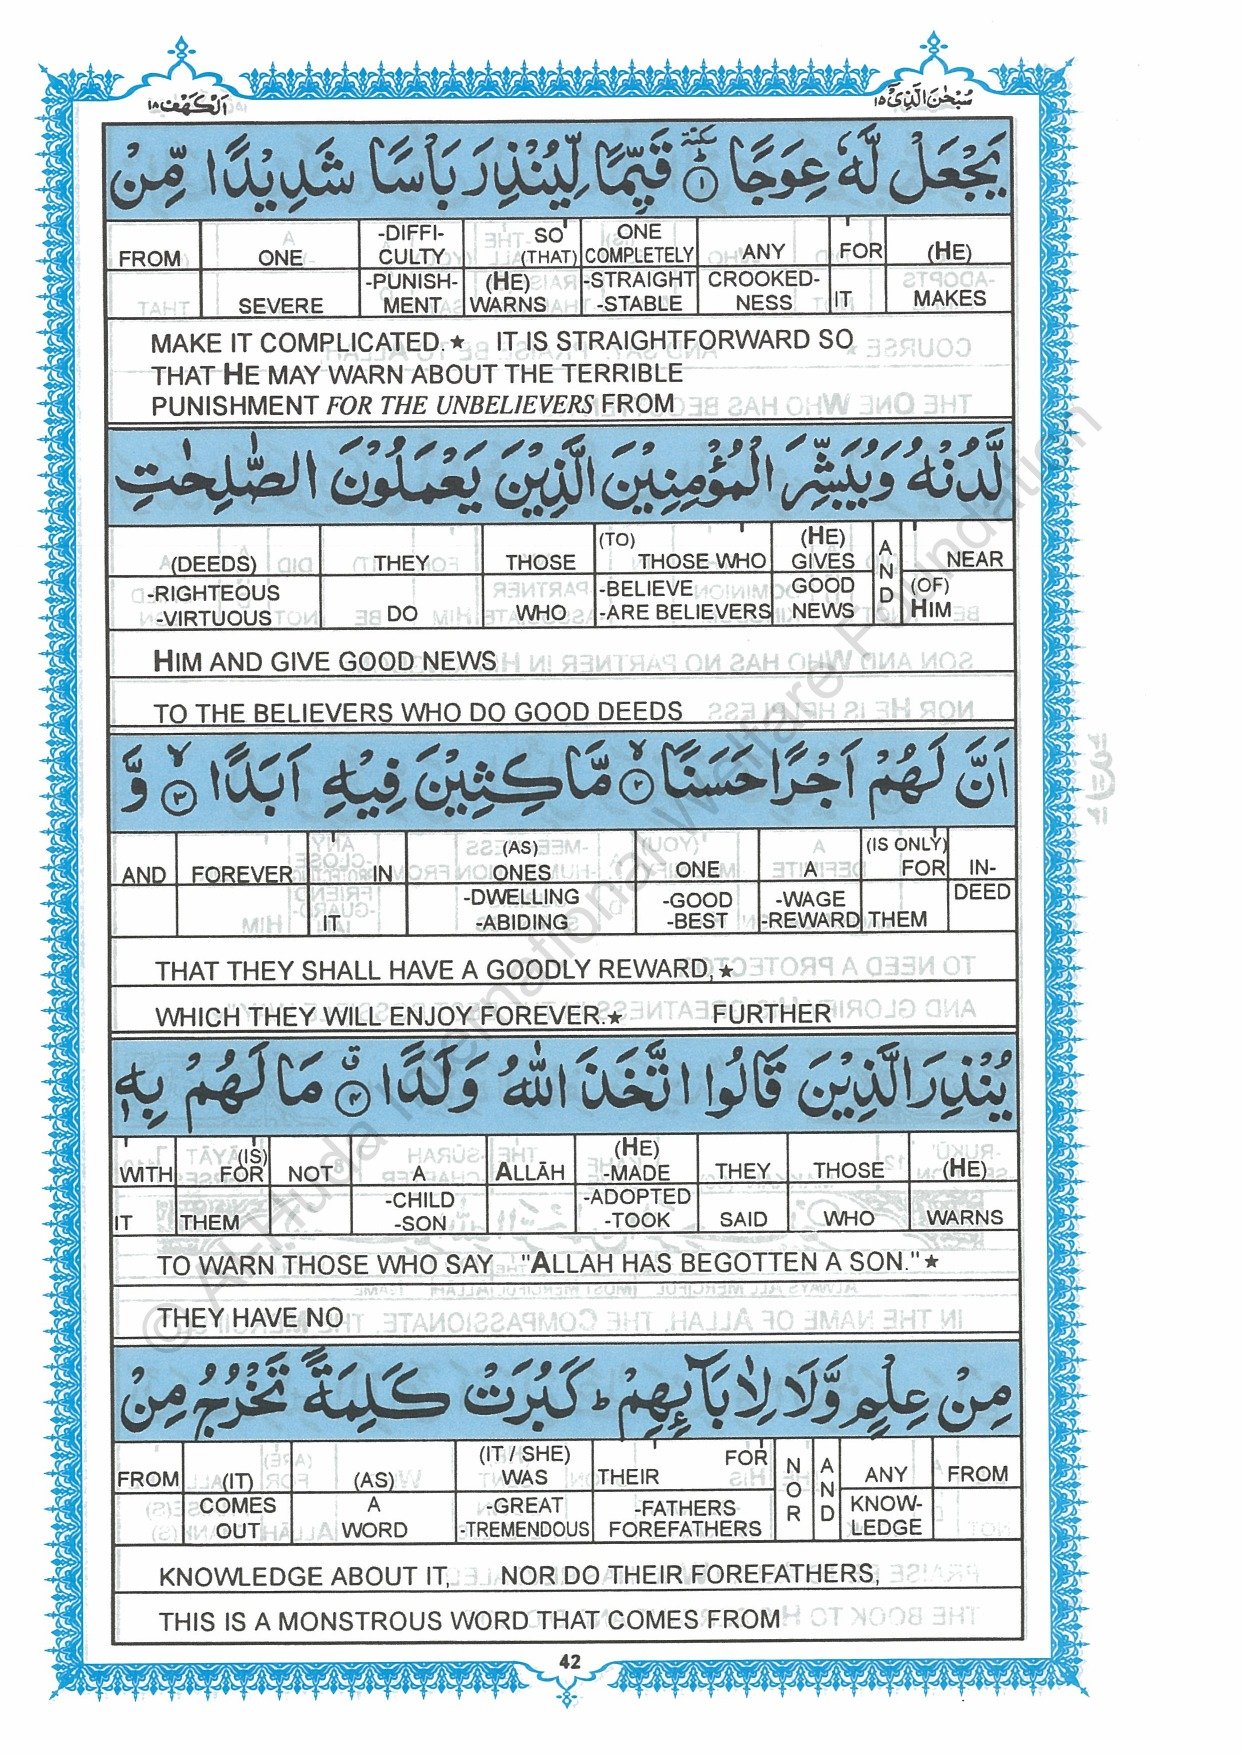 اَلْكَهْف ١٨
سُبْحٰنَ الَّذِيْٓ ١٥
يَجْعَلْ لَّهٗ عِوَجًا ۜ ١ قَيِّمًا لِّيُنْذِرَ بَاْسًا شَدِيْدًا مِّنْ
FROM ONE -DIFFI- SO ONE ANY FOR (HE)
CULTY (THAT) COMPLETELY
SEVERE -PUNISH- (HE) -STRAIGHT CROOKED- IT MAKES
MENT WARNS -STABLE NESS
MAKE IT COMPLICATED.★ IT IS STRAIGHTFORWARD SO
THAT HE MAY WARN ABOUT THE TERRIBLE
PUNISHMENT FOR THE UNBELIEVERS FROM
لَّدُنْهُ وَيُبَشِّرَ الْمُؤْمِنِيْنَ الَّذِيْنَ يَعْمَلُوْنَ الصّٰلِحٰتِ
(DEEDS) THEY THOSE (TO) THOSE WHO (HE) GIVES AND NEAR
-RIGHTEOUS DO WHO -BELIEVE GOOD (OF)
-VIRTUOUS -ARE BELIEVERS NEWS HIM
HIM AND GIVE GOOD NEWS
TO THE BELIEVERS WHO DO GOOD DEEDS
اَنَّ لَهُمْ اَجْرًا حَسَنًا ۙ ٢ مَّاكِثِيْنَ فِيْهِ اَبَدًا ۙ ٣ وَّ
AND FOREVER IN (AS) ONES ONE A (IS ONLY) FOR IN-
IT -DWELLING -GOOD -WAGE THEM DEED
-ABIDING -BEST -REWARD
THAT THEY SHALL HAVE A GOODLY REWARD,★
WHICH THEY WILL ENJOY FOREVER.★ FURTHER
يُنْذِرَ الَّذِيْنَ قَالُوا اتَّخَذَ اللّٰهُ وَلَدًا ۗ ٤ مَا لَهُمْ بِهٖ
WITH (IS) FOR NOT A ALLĀH (HE) -MADE THEY THOSE (HE)
IT THEM -CHILD -ADOPTED SAID WHO WARNS
-SON -TOOK
TO WARN THOSE WHO SAY "ALLAH HAS BEGOTTEN A SON."★
THEY HAVE NO
مِنْ عِلْمٍ وَّلَا لِاٰبَآئِهِمْ ؕ كَبُرَتْ كَلِمَةً تَخْرُجُ مِنْ
FROM (IT) (AS) (IT / SHE) WAS THEIR FOR NOR AND ANY FROM
COMES A -GREAT -FATHERS KNOW-
OUT WORD -TREMENDOUS FOREFATHERS LEDGE
KNOWLEDGE ABOUT IT, NOR DO THEIR FOREFATHERS,
THIS IS A MONSTROUS WORD THAT COMES FROM
42
© Al-Huda International Welfare Foundation